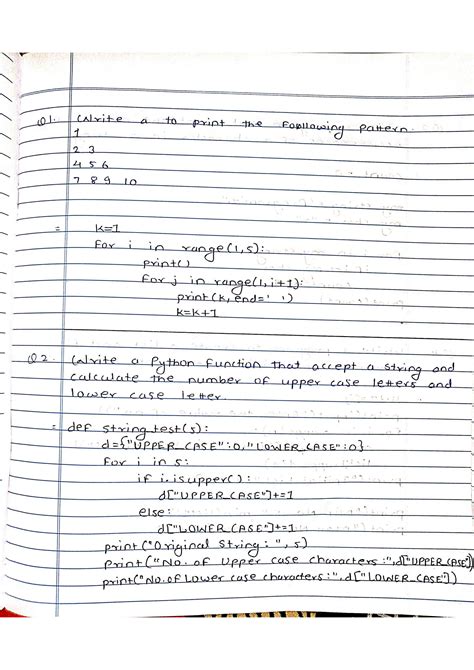 Q1. Write a to print the Foollowing pattern.
1
2 3
4 5 6
7 8 9 10
= k=1
For i in range(1,5):
print()
For j in range(1,i+1):
print(k,end=' ')
k=k+1
Q2. Write a Python Function that accept a string and
calculate the number of upper case letters and
lower case letter.
= def string_test(s):
d={"UPPER_CASE":0,"LOWER_CASE":0}
For i in s:
if i.isupper():
d["UPPER_CASE"]+=1
else:
d["LOWER_CASE"]+=1
print("Original String:",s)
print("No. of Upper case characters:",d["UPPER_CASE"])
print("No. of Lower case characters:",d["LOWER_CASE"])